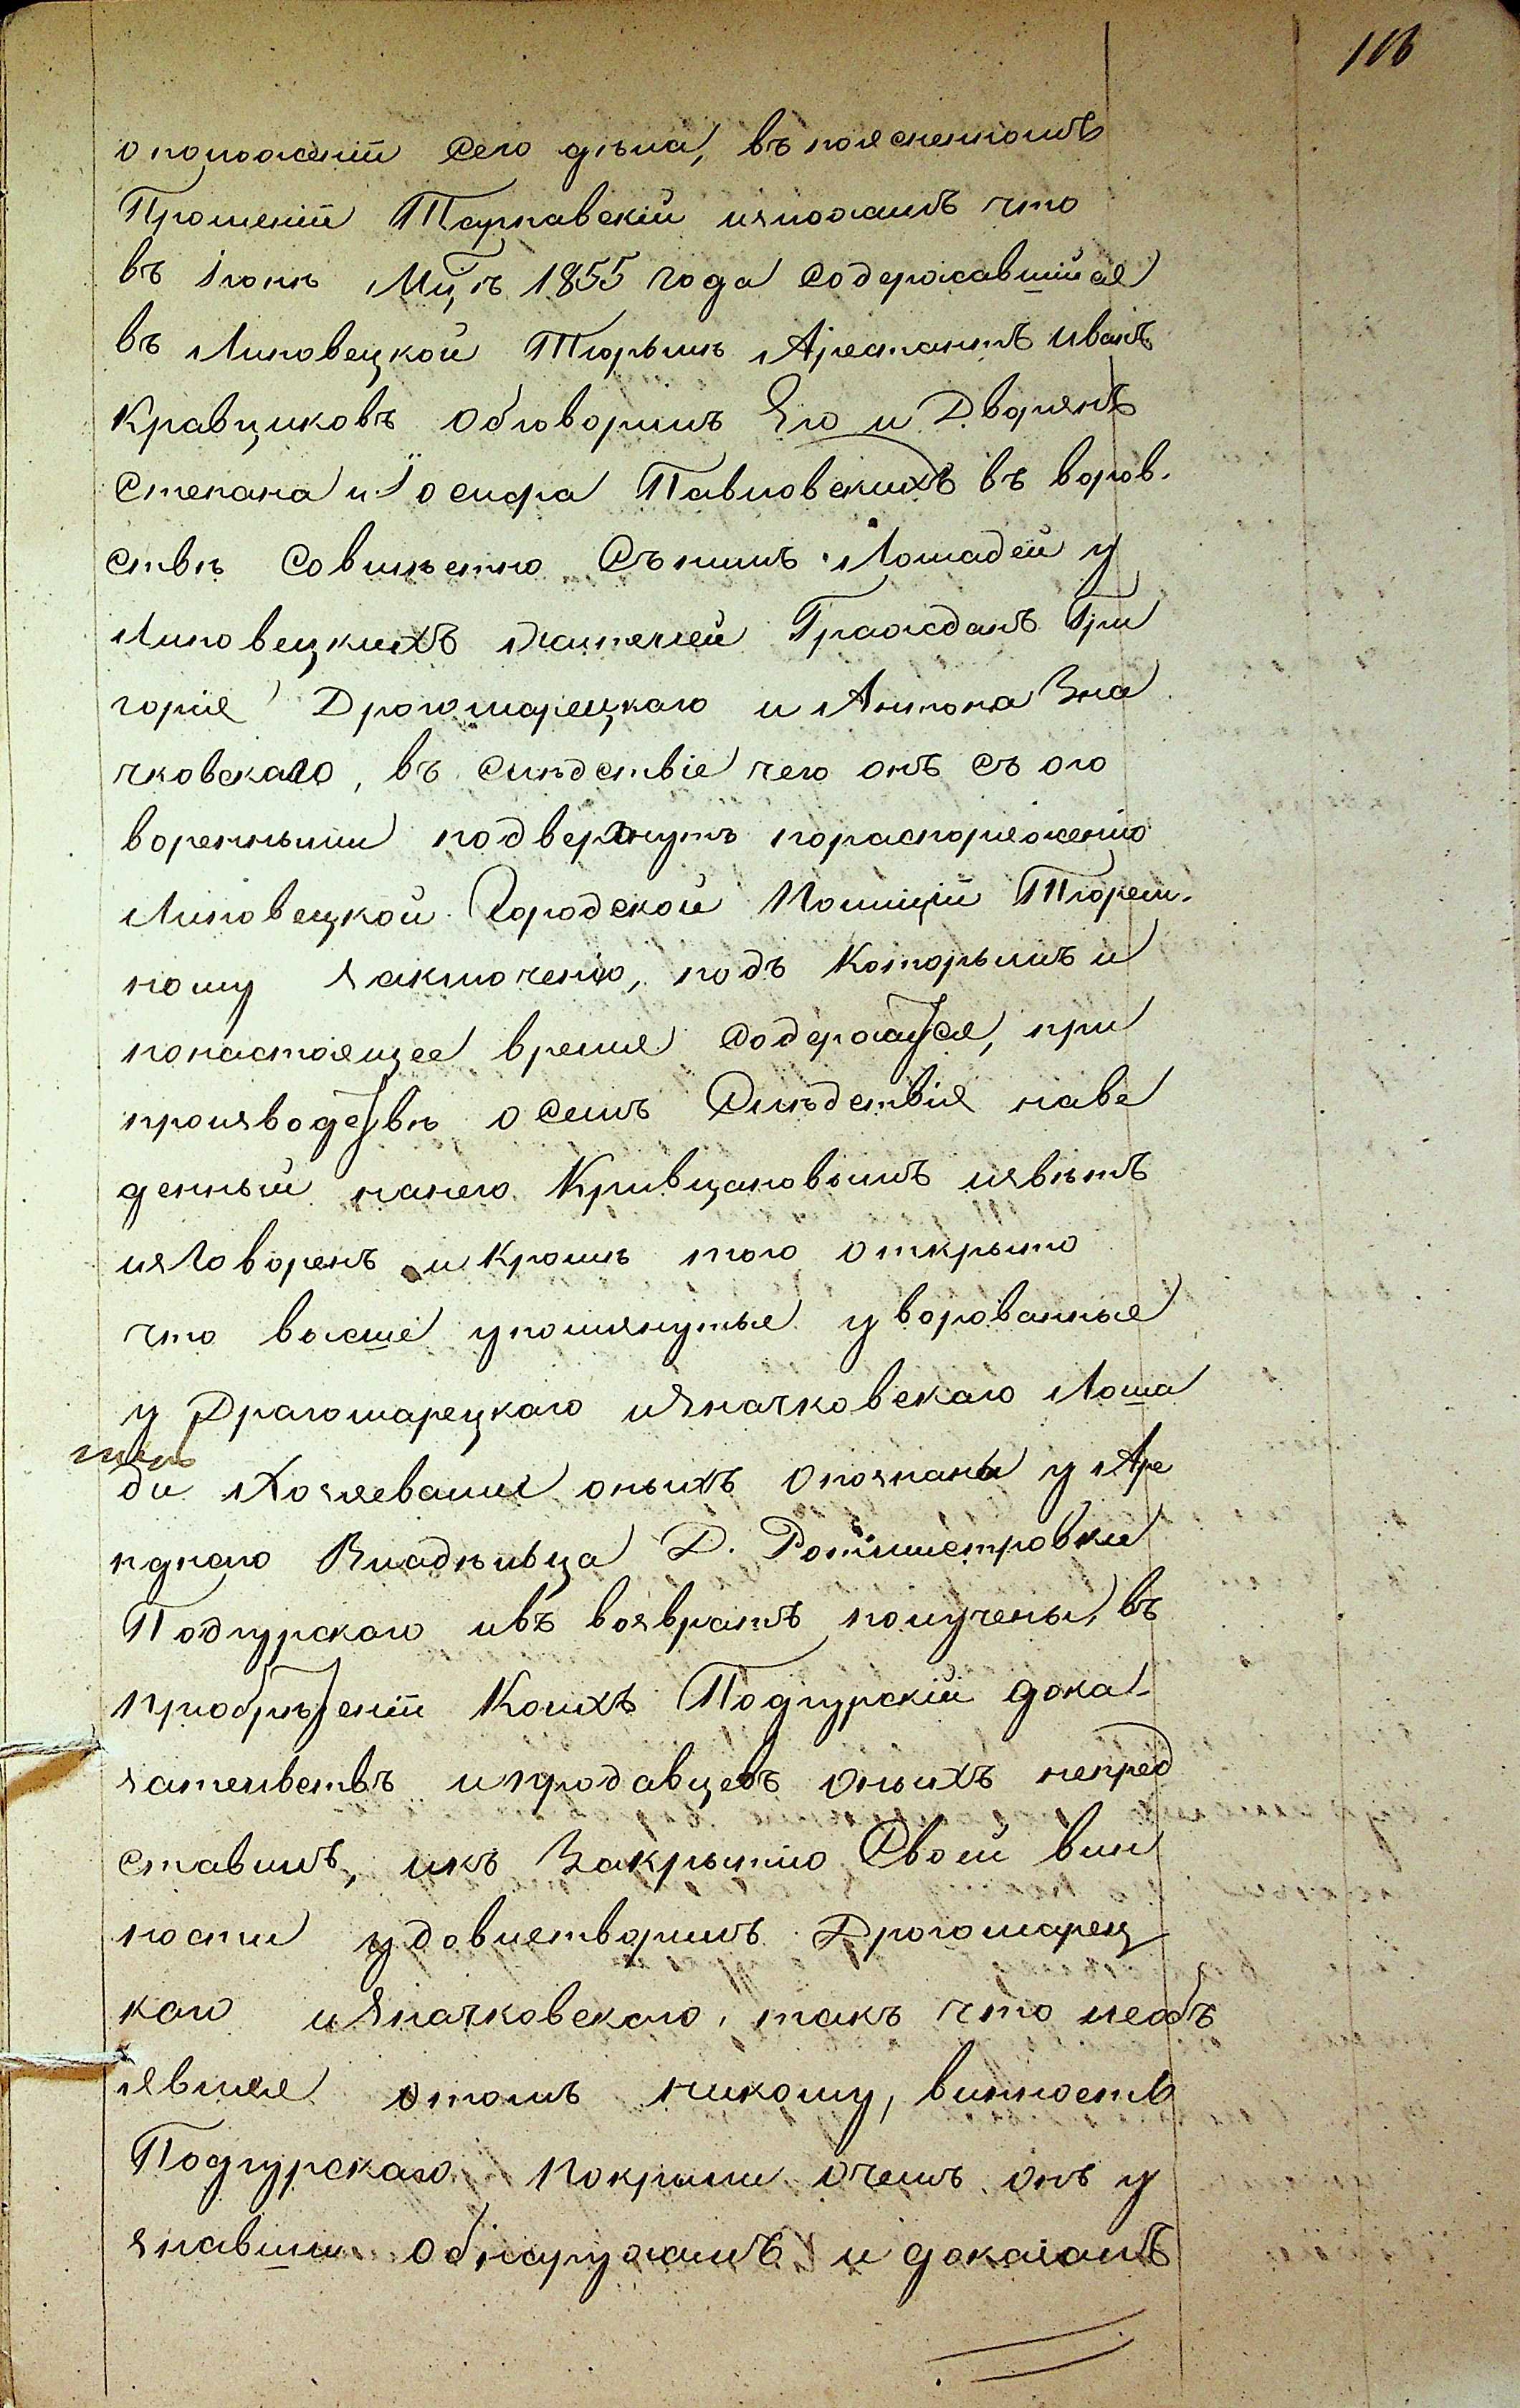 116
о положеніи сего дѣла, въ поясненномъ
Прошеніи Тарнавскій изложилъ что
въ Іюнѣ Мцѣ 1855 года Содержавшійся
въ Липовецкой Тюрьмѣ Арестантъ Иванъ
Кравциковъ Обговорилъ Его и Дворянъ
Степана и Іосифа Павловскихъ въ воров-
ствѣ Совмѣстно Съ нимъ Лошадей у
Липовецкихъ жителей Гражданъ Гри
горія Дрогомарецкаго и Антона Зна
чковскаго, въ слѣдствіе чего онъ съ ого
воренными подвергнутъ пораспоряженію
Липовецкой Городской Полиціи Тюрем-
ному заключенію, подъ Которымъ и
понастоящее время Содержатся, при
производствѣ о Семъ Слѣдствія наве
денный нанего Кривцановымъ извѣтъ
изговоренъ и Кромѣ того открыто
что высше упомянутые уворованные
у Драгомарецкаго изначковскаго Лоша
ди Хозяевами оныхъ опознаны у Аре
нднаго Владѣльца Д. Ротмистровки
Подгурскаго ивъ возвратъ получены, въ
пріобрѣтеніи Коихъ Подгурскій дока-
зательствъ ипродавцевъ оныхъ непред
ставилъ, икъ Закрытію Своей вин
ности удовлетворилъ Дрогомарец
каго изначковскаго, такъ что необъ
являя отомъ никому, винность
Подгурскаго Покрыли очемъ онъ у
знавши обнаружилъ и доказалъ